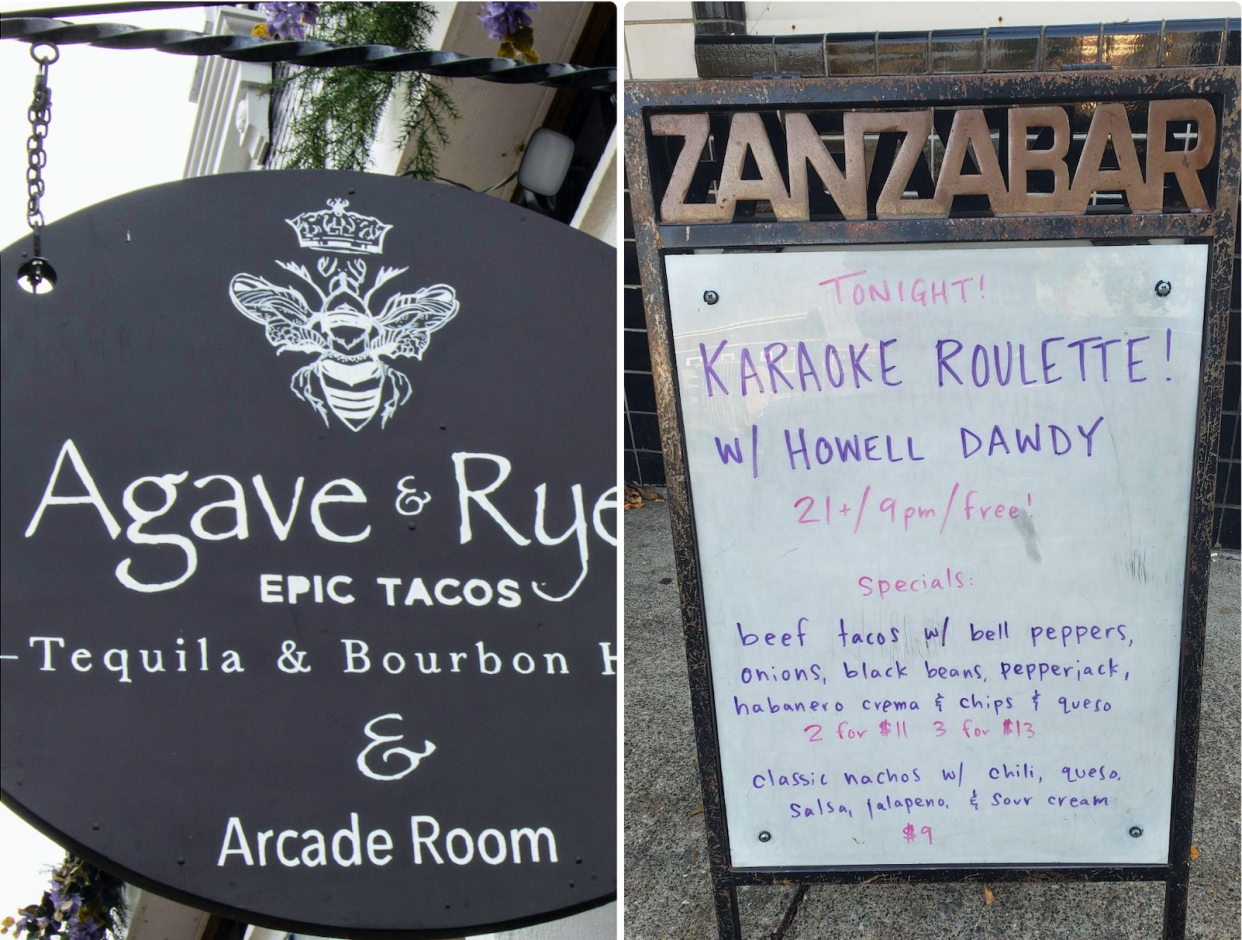 Agave & Rye
EPIC TACOS
Tequila & Bourbon H
&
Arcade Room
ZANZABAR
TONIGHT!
KARAOKE ROULETTE!
w/ HOWELL DAWDY
21+/9pm/free!
Specials:
beef tacos w/ bell peppers,
onions, black beans, pepperjack,
habanero crema & chips & queso
2 for $11 3 for $13
classic nachos w/ chili, queso,
salsa, jalapeno, & sour cream
$9